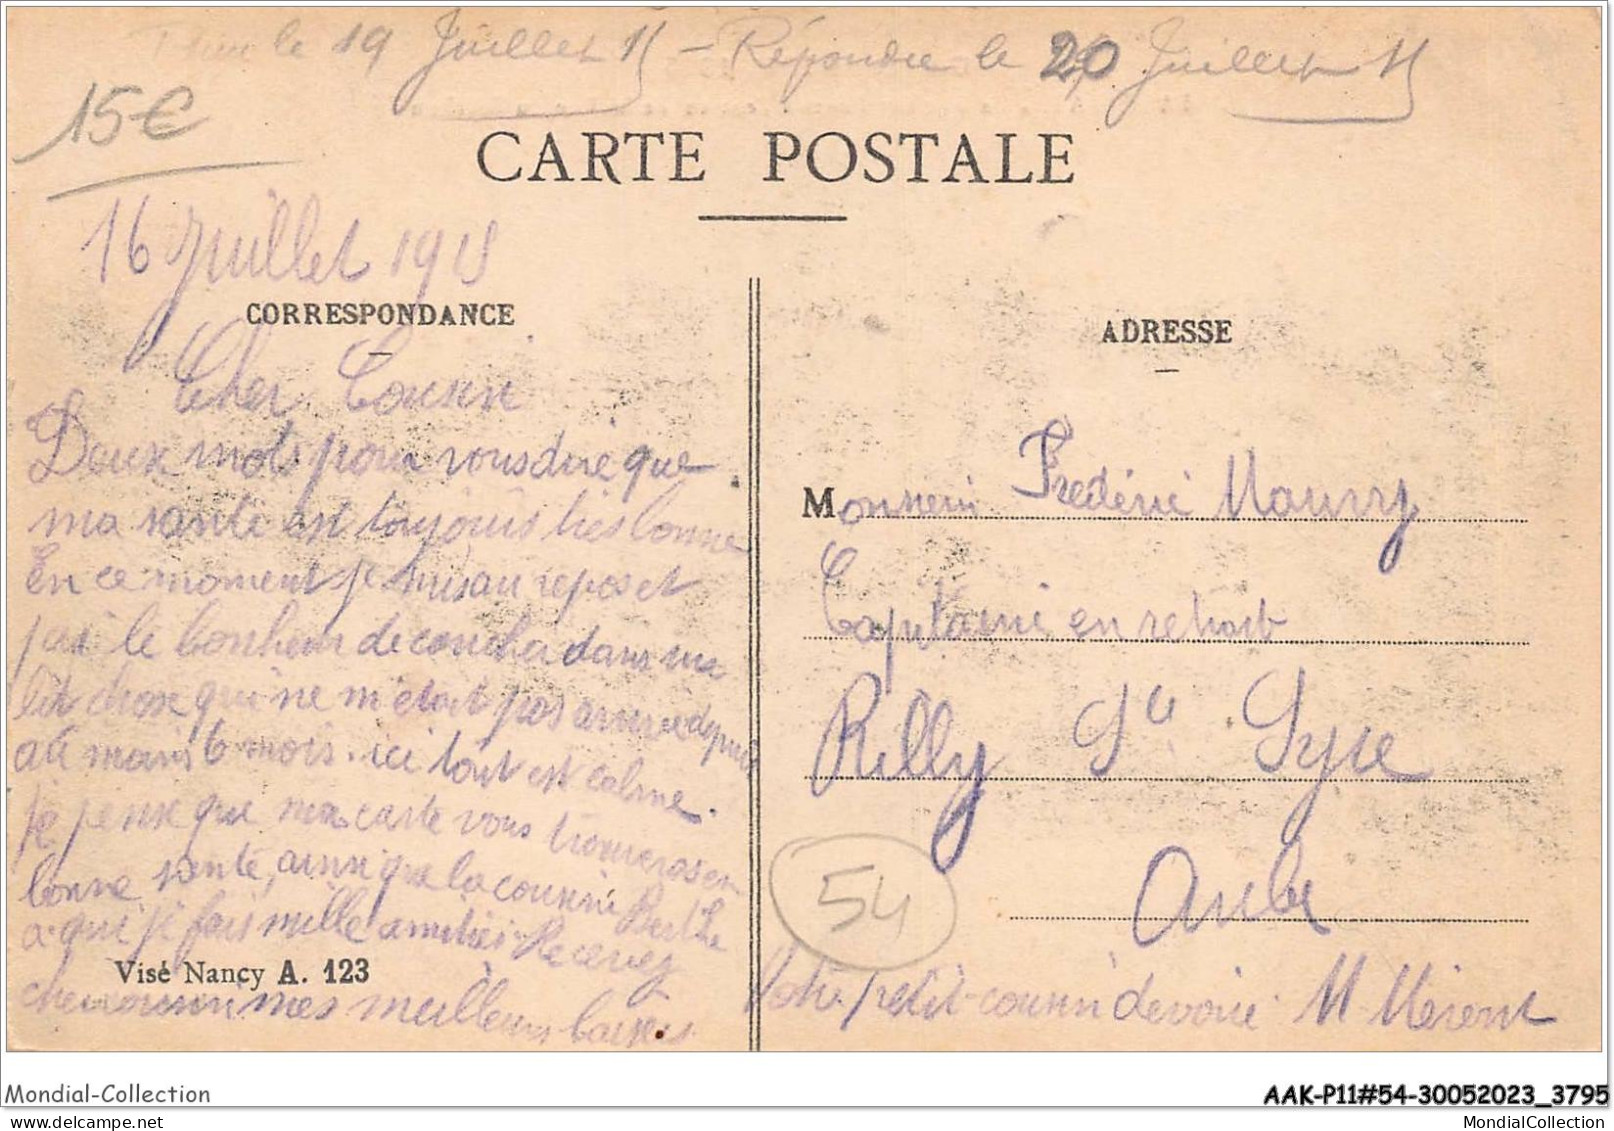 le 19 Juillet 15 - Répondu le 20 Juillet 15
15€
CARTE POSTALE
16 Juillet 1915
CORRESPONDANCE
ADRESSE
Cher Cousin
Deux mots pour vous dire que
ma santé est toujours très bonne
En ce moment je suis au repos et
j'ai le bonheur de coucher dans un
lit chose qui ne m'était pas arrivé depuis
au moins 6 mois. ici tout est calme.
je pense que ma carte vous trouvera en
bonne santé, ainsi que la cousine Berthe
a qui je fais mille amitiés. Recevez
Visé Nancy A. 123
cher cousin mes meilleurs baisers
Monsieur Frédéric Maury
Capitaine en retraite
Rilly Ste Syre
Aube
54
Votre petit cousin dévoué M
Mondial-Collection
AAK-P11#54-30052023_3795
MondialCollection.com
MondialCollection